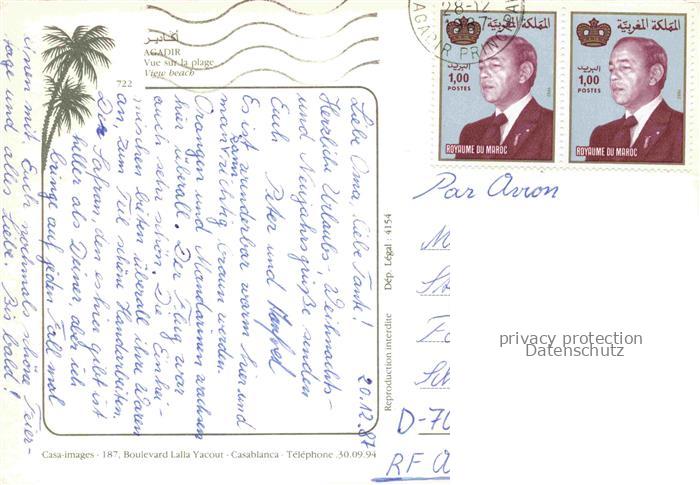 أكادير
AGADIR
Vue sur la plage
View beach
722
20.12.87
Liebe Oma, liebe Tanti!
Herzliche Urlaubs-, Weihnachts-
und Neujahrsgrüße senden
Euch Peter und
Es ist wunderbar warm hier und
man kann richtig braun werden.
Orangen und Mandarinen wachsen
hier überall. Der Flug war
auch sehr schön. Die Einhei-
mischen bieten überall ihre Waren
an, zum Teil schöne Handarbeiten.
Der Safran, den es hier gibt ist
heller als Deiner, aber ich
bringe auf jeden Fall mal
einen mit. Euch nochmals schöne Feier-
tage und alles Liebe. Bis bald!
Casa-images - 187, Boulevard Lalla Yacout - Casablanca - Téléphone .30.09.94
Reproduction interdite Dép. Légal : 4154
28-12
1987
AGADIR PRINCIPAL
المملكة المغربية
البريد
1,00
POSTES
ROYAUME DU MAROC
المملكة المغربية
البريد
1,00
POSTES
ROYAUME DU MAROC
Par Avion
D-70
RF
privacy protection
Datenschutz